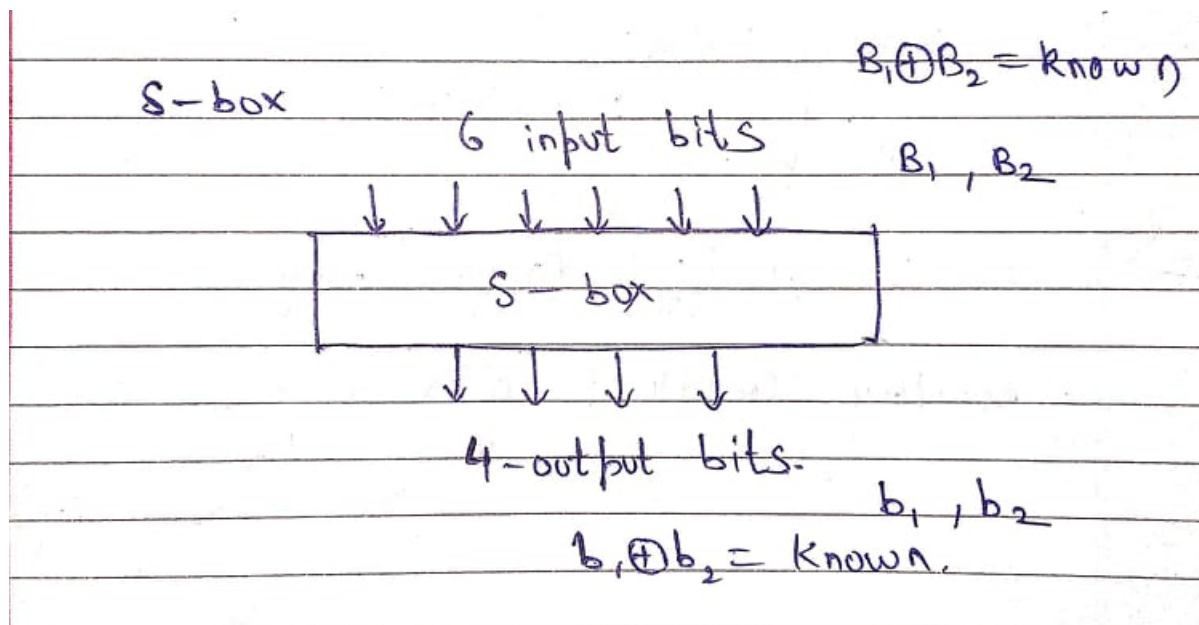 B₁⊕B₂ = Known
S-box
6 input bits
B₁, B₂
S-box
4-output bits.
b₁, b₂
b₁⊕b₂ = Known.